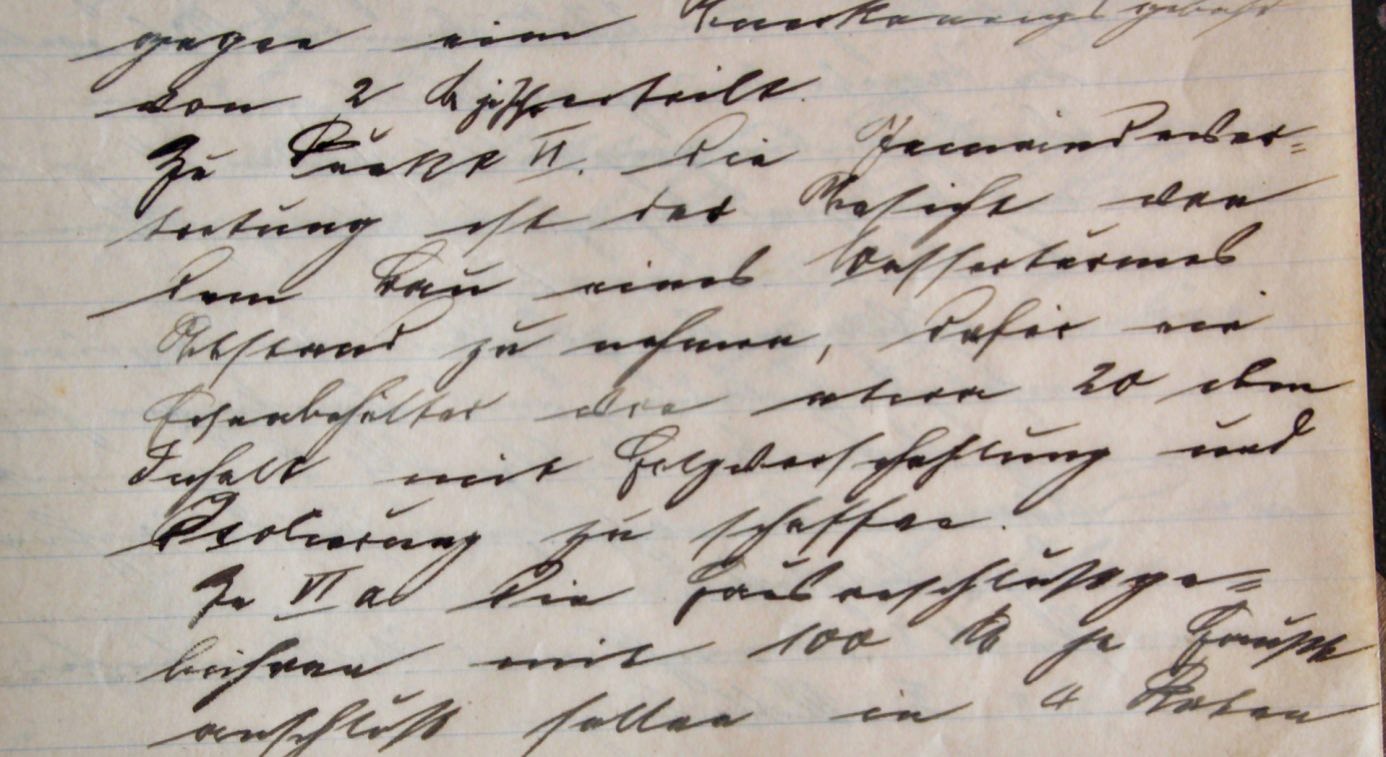 gegen eine Anerkennungsgebühr
von 2 M jährl. erteilt.
Zu Punkt VI. Die Gemeindever=
tretung ist der Ansicht von
dem Bau eines Wasserturmes
Abstand zu nehmen, dafür ein
Eisenbehälter von etwa 20 cbm
Inhalt mit Holzverschahlung und
Isolierung zu schaffen.
Zu VI a Die Hausanschlußge=
bühren mit 100 M je Haus
anschluß sollen in 4 Raten